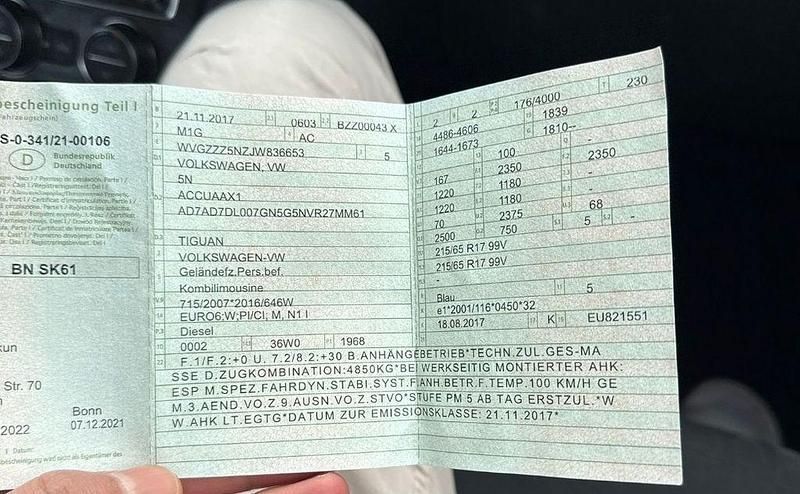 escheinigung Teil I
S-0-341/21-00106
D
Bundesrepublik
Deutschland
BN SK61
kun
Str. 70
n
Bonn
2022
07.12.2021
21.11.2017 0603 BZZ00043 X
M1G AC
WVGZZZ5NZJW836653 5
VOLKSWAGEN, VW
5N
ACCUAAX1
AD7AD7DL007GN5G5NVR27MM61
TIGUAN
VOLKSWAGEN-VW
Geländefz.Pers.bef.
Kombilimousine
715/2007*2016/646W
EURO6;W;PI/CI; M, N1 I
Diesel
0002 36W0 1968
2 2 176/4000 230
4486-4606 1839
1644-1673 1810--
- 100 -
167 2350 2350
1220 1180 -
1220 1180
70 2375 68
2500 750 5 -
215/65 R17 99V
215/65 R17 99V
-
Blau 5
e1*2001/116*0450*32
18.08.2017 K EU821551
F.1/F.2:+0 U. 7.2/8.2:+30 B.ANHÄNGEBETRIEB*TECHN.ZUL.GES-MA
SSE D.ZUGKOMBINATION:4850KG*BEI WERKSEITIG MONTIERTER AHK:
ESP M.SPEZ.FAHRDYN.STABI.SYST.F.ANH.BETR.F.TEMP.100 KM/H GE
M.3.AEND.VO.Z.9.AUSN.VO.Z.STVO*STUFE PM 5 AB TAG ERSTZUL.*W
W.AHK LT.EGTG*DATUM ZUR EMISSIONSKLASSE: 21.11.2017*